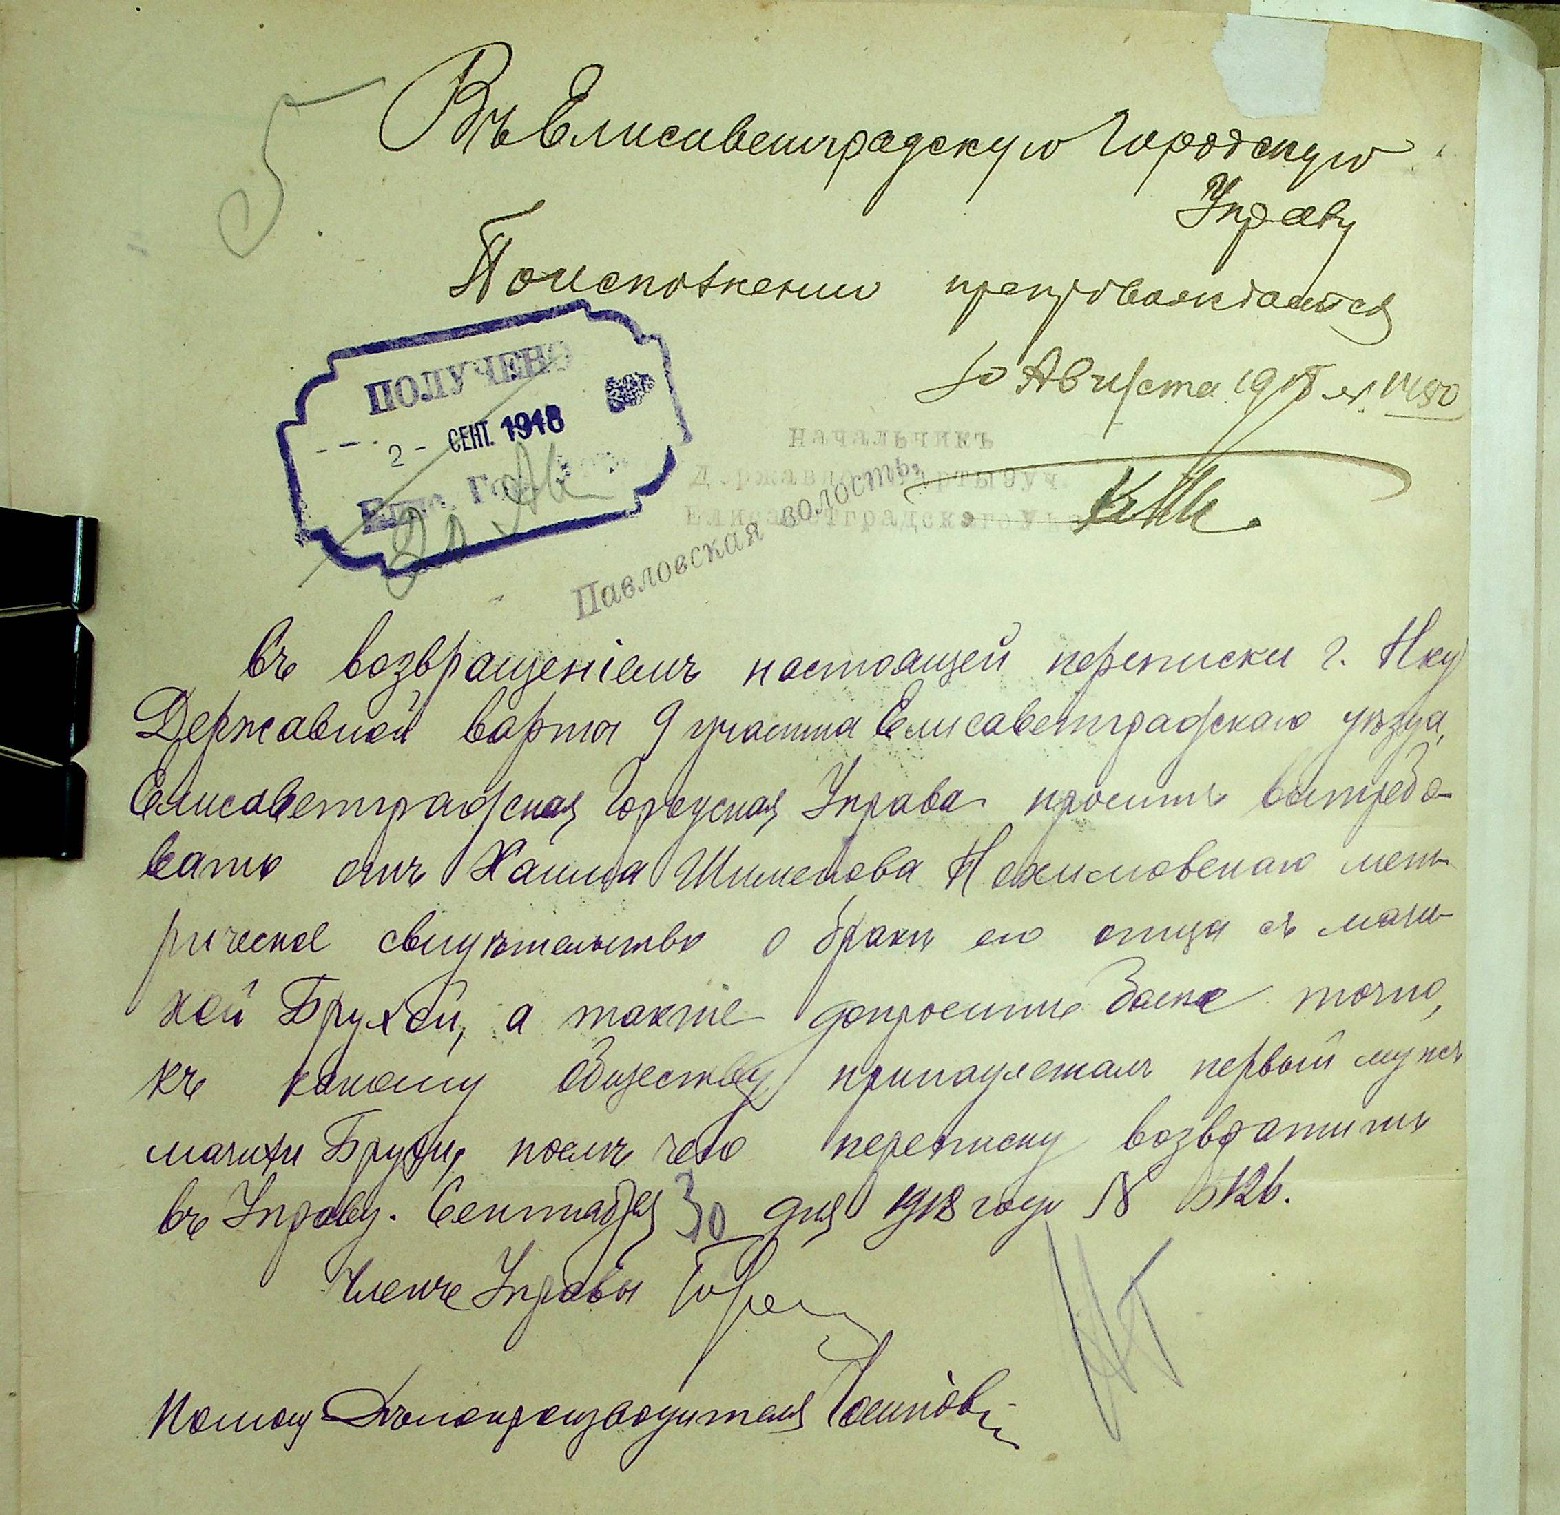 5
Въ Елисаветградскую Городскую
Управу
По исполнении препровождается
Августа 1918 г. № 1480
ПОЛУЧЕНО
2 - СЕНТ. 1918
Елис. Гор.
Начальникъ
Державной Варты 9 уч.
Елисаветградскаго У
Павловская волость,
Въ возвращеніемъ настоящей переписки г. Нку
Державной варты 9 участка Елисаветградскаго уѣзда,
Елисаветградская Городская Управа проситъ вытребо-
вать отъ Хаима Шимонова Нехимовскаго мет-
рическое свидѣтельство о бракѣ его отца съ маче-
хой Брухой, а также допросить болѣе точно,
къ какому обществу принадлежалъ первый мужъ
мачихи Брухи, послѣ чего переписку возвратить
въ Управу. Сентября 30 дня 1918 года № 5126.
Членъ Управы
Помощ Дѣлопроизводителя